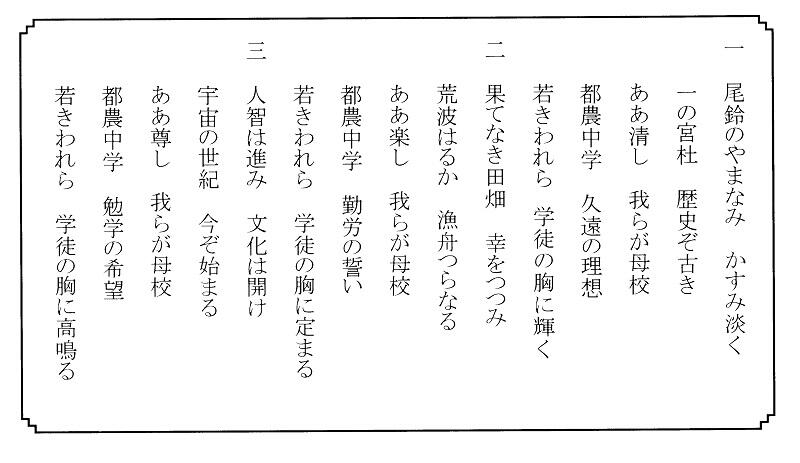 一 尾鈴のやまなみ かすみ淡く
一の宮杜 歴史ぞ古き
ああ清し 我らが母校
都農中学 久遠の理想
若きわれら 学徒の胸に輝く
二 果てなき田畑 幸をつつみ
荒波はるか 漁舟つらなる
ああ楽し 我らが母校
都農中学 勤労の誓い
若きわれら 学徒の胸に定まる
三 人智は進み 文化は開け
宇宙の世紀 今ぞ始まる
ああ尊し 我らが母校
都農中学 勉学の希望
若きわれら 学徒の胸に高鳴る